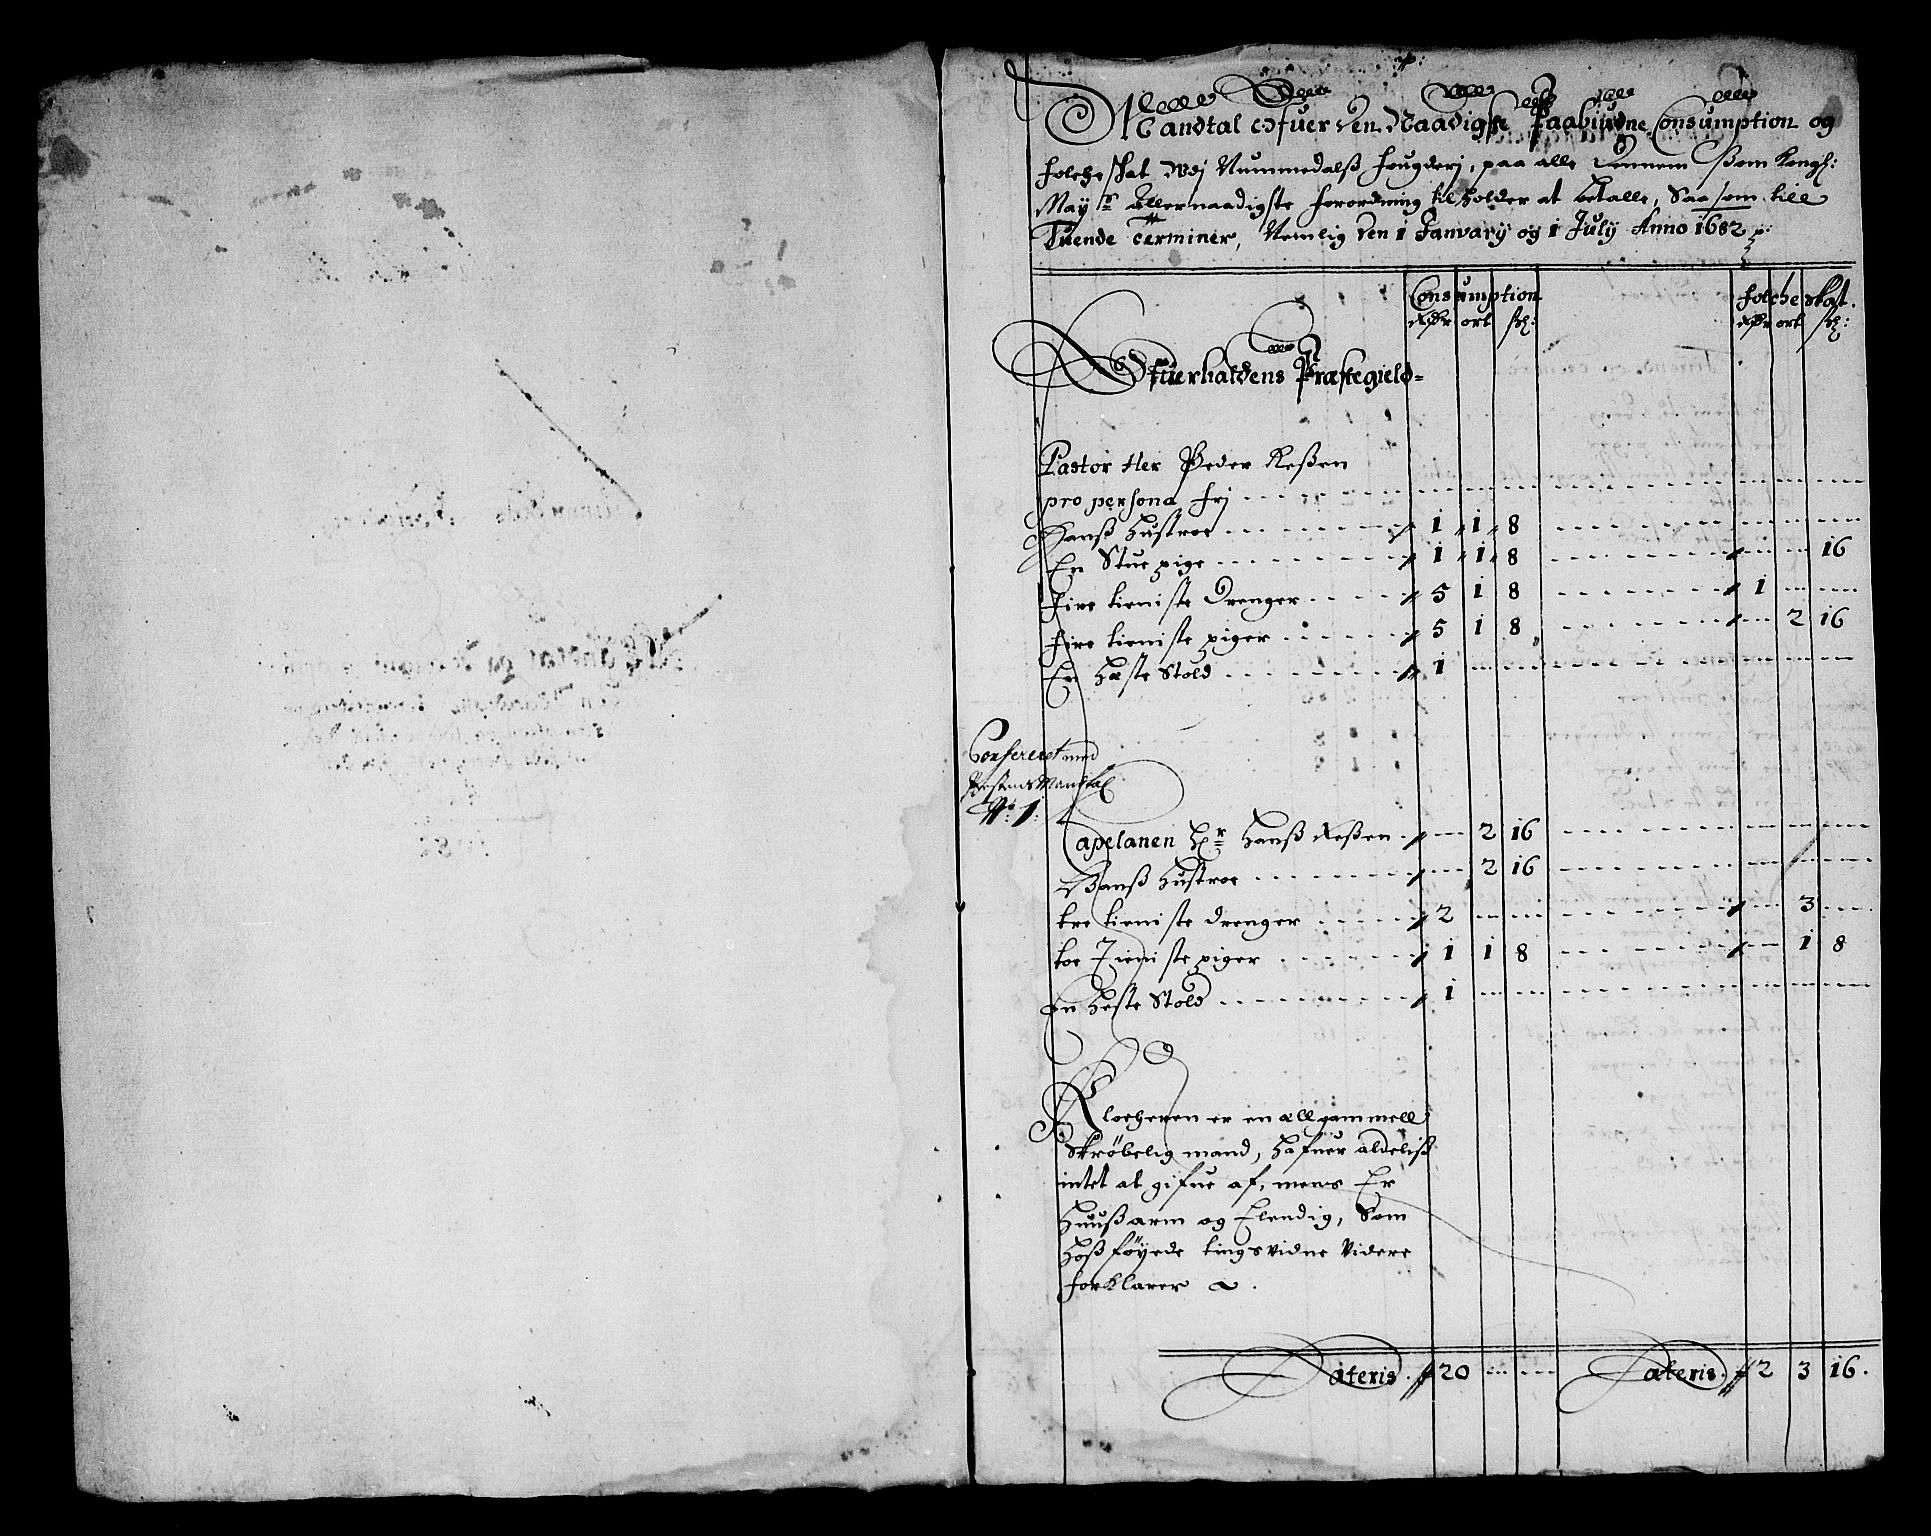 Mandtal Ofuer den Naadigste Paabiudne Consumption og
folche skat udj Nummedalß fougderj, paa alle dennem Som Kongl:
May:ts Allernaadigste forordning tilholder at betalle, Saa som till
Tuende terminer, Nemlig den 1 January og 1 July Anno 1682
Consumption folche skat.
rdr ort sk: rdr ort sk:
Ofuerhaldens Præstegield
Pastor Her Peder Reßen
pro persona frj
Hanß hustroe 1 1 8
En Stue pige 1 1 8 16
fire tieniste drenger 5 1 8 1
fire tieniste piger 5 1 8 2 16
En hæste Stold 1
Confereret med
Præstens Mandtal
No: 1:
Capelanen Hr Hanß Reßen 2 16
Hanß hustroe 2 16
tre tieniste drenger 2 3
toe Tieniste piger 1 1 8 1 8
En heste Stold 1
Klocheren er en allgammell
Skrøbelig mand, hafuer aldeliß
intet at gifue af, mens Er
huußarm og Elendig, Som
hoß føyede tingsvidne videre
forklarer
Lateris 20 Lateris 2 3 16.